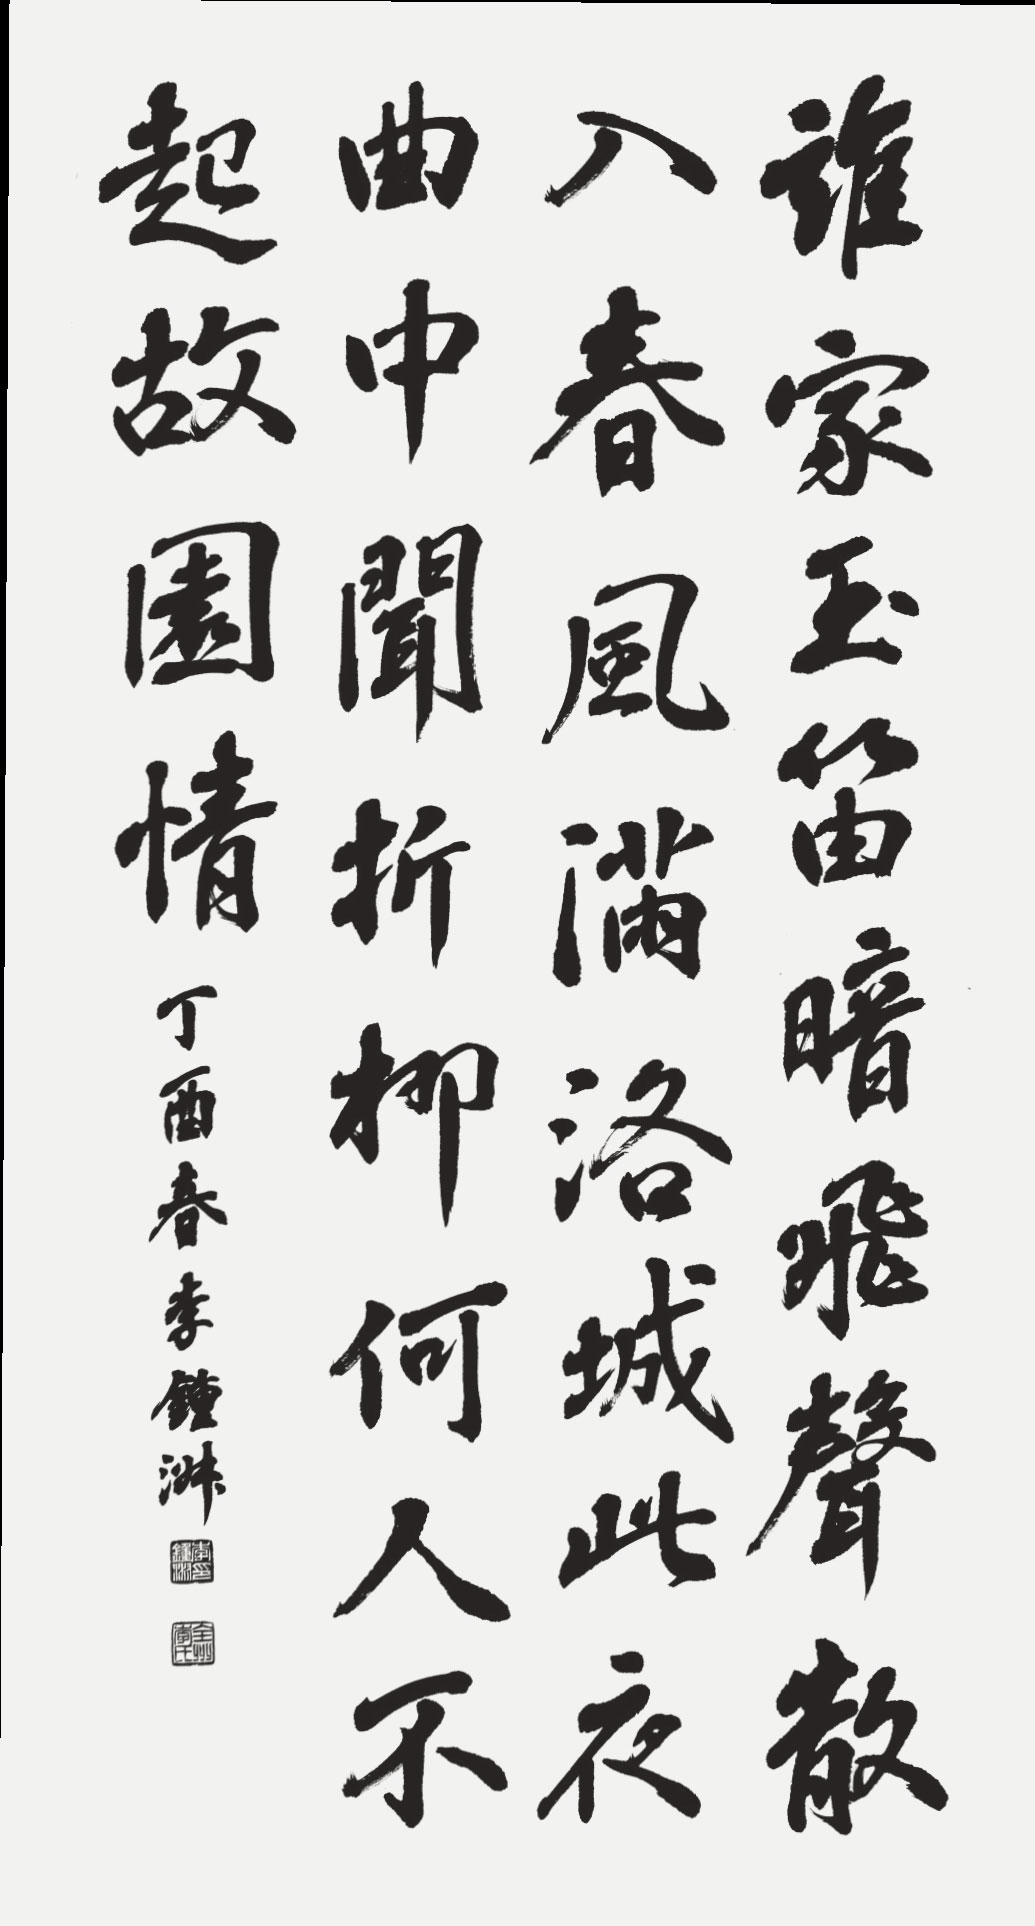 誰家玉笛暗飛聲散
入春風滿洛城此夜
曲中聞折柳何人不
起故園情
丁酉春李鐘淋